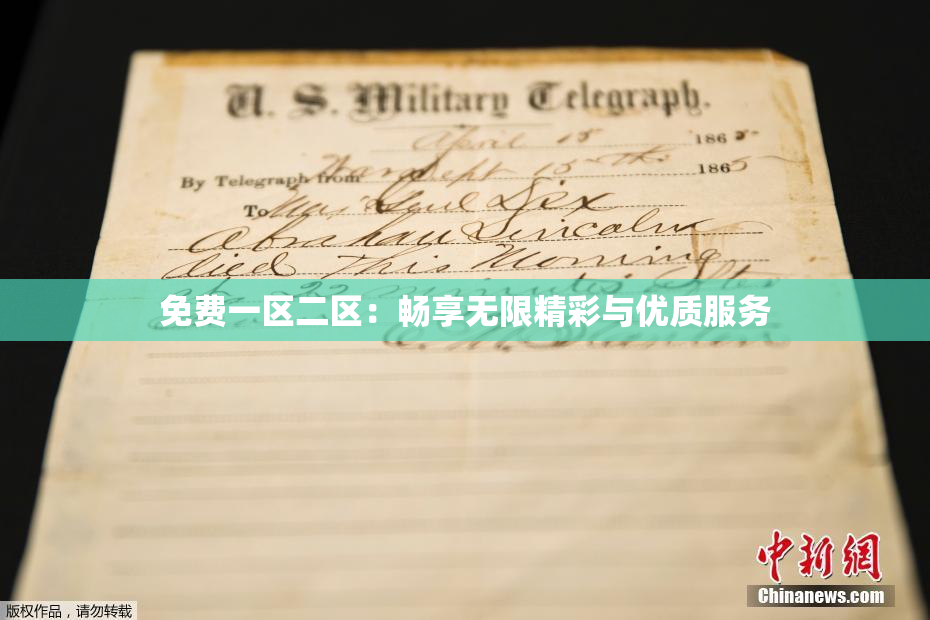 U. S. Military Telegraph.
April 15 1865
By Telegraph from War Dept 15th 1865
To Maj Genl Dix
Abraham Lincoln
died This Morning
22 minutes after
免费一区二区：畅享无限精彩与优质服务
E. M. Stanton
中新网
Chinanews.com
版权作品，请勿转载